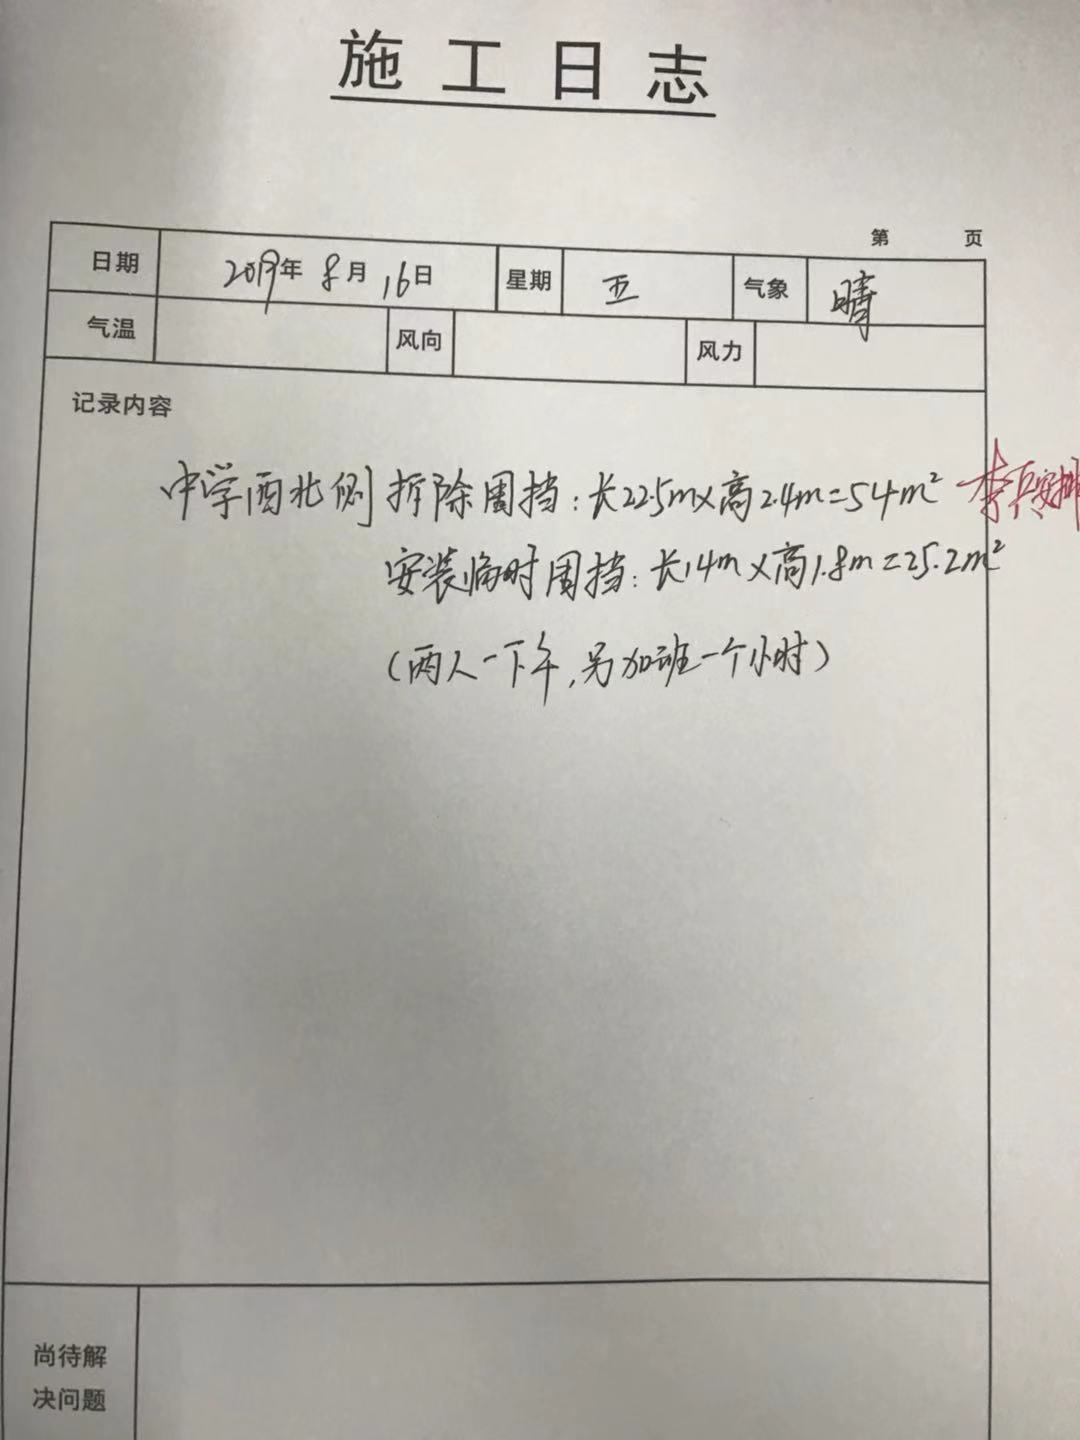 施工日志
第 页
日期 2019年 8月 16日 星期 五 气象 晴
气温 风向 风力
记录内容
中学西北侧 拆除围挡：长22.5m×高2.4m=54m² 李兵安排
安装临时围挡：长14m×高1.8m=25.2m²
（两人一下午，另加班一个小时）
尚待解
决问题